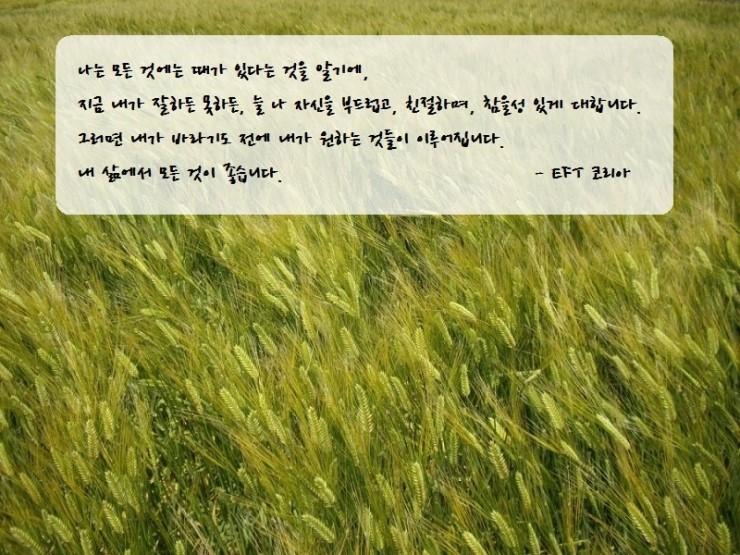 나는 모든 것에는 때가 있다는 것을 알기에,
지금 내가 잘하든 못하든, 늘 나 자신을 부드럽고, 친절하며, 참을성 있게 대합니다.
그러면 내가 바라기도 전에 내가 원하는 것들이 이루어집니다.
내 삶에서 모든 것이 좋습니다. - EFT 코리아